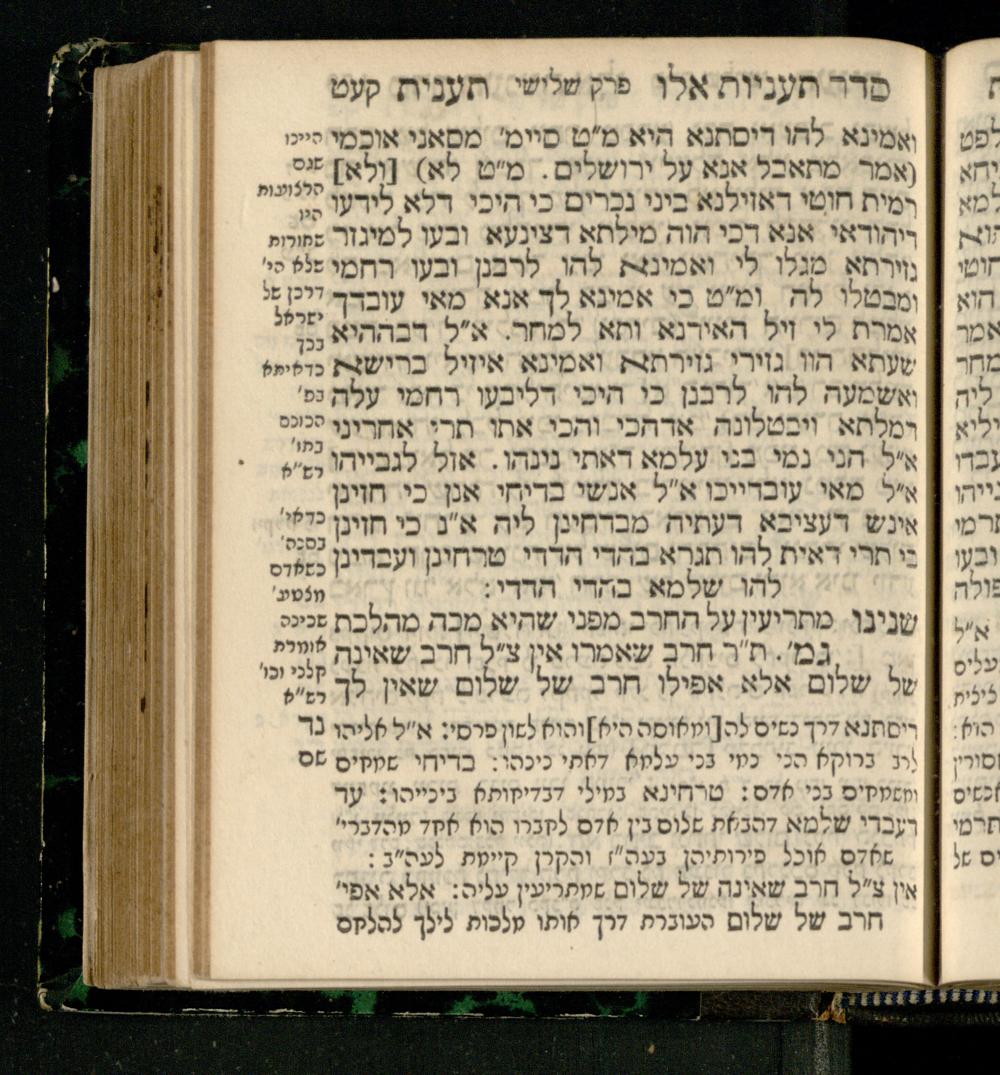 סדר תעניות אלו פרק שלישי תענית קעט
ואמינא להו דיסתנא היא מ״ט סיימ׳ מסאני אוכמי
(אמר מתאבל אנא על ירושלים. מ״ט לא) [ולא]
רמית חוטי דאזילנא ביני נכרים כי היכי דלא לידעו
דיהודאי אנא דכי הוה מילתא דצינעא ובעו למיגזר
גזירתא מגלו לי ואמינא להו לרבנן ובעו רחמי
ומבטלו לה ומ״ט כי אמינא לך אנא מאי עובדך
אמרת לי זיל האידנא ותא למחר. א״ל דבההיא
שעתא הוו גזירי גזירתא ואמינא איזיל ברישא
ואשמעה להו לרבנן כי היכי דליבעו רחמי עלה
דמלתא ויבטלונה אדהכי והכי אתו תרי אחריני
א״ל הני נמי בני עלמא דאתי נינהו. אזל לגבייהו
א״ל מאי עובדייכו א״ל אנשי בדיחי אנן כי חזינן
אינש דעציבא דעתיה מבדחינן ליה א״נ כי חזינן
בי תרי דאית להו תגרא בהדי הדדי טרחינן ועבדינן
להו שלמא בהדי הדדי:
שנינו מתריעין על החרב מפני שהיא מכה מהלכת
גמ׳. ת״ר חרב שאמרו אין צ״ל חרב שאינה
של שלום אלא אפילו חרב של שלום שאין לך
דיסתנא דרך נשים לה [ומאוסה היא] והוא לשון פרסי: א״ל אליהו
לרב ברוקא הני נמי בני עלמא דאתי נינהו: בדיחי שמחים
ומשמחים בני אדם: טרחינא במילי דבדיחותא ביניהו: עד
דעבדי שלמא דהבאת שלום בין אדם לחברו הוא אחד מהדברי׳
שאדם אוכל פירותיהן בעה״ז והקרן קיימת לעה״ב:
אין צ״ל חרב שאינה של שלום שמתריעין עליה: אלא אפי׳
חרב של שלום העוברת דרך אותו מלכות לילך להלחם
היינו
שגם
הרצועות
היו
שחורות
שלא הי׳
דרכן של
ישראל
בכך
כדאיתא
בפ׳
הכונס
בתו׳
רש״א
כדאי׳
בסנה׳
כשאדם
מצטע׳
שכינה
אומרת
קלני וכו׳
רש״א
נד
שם